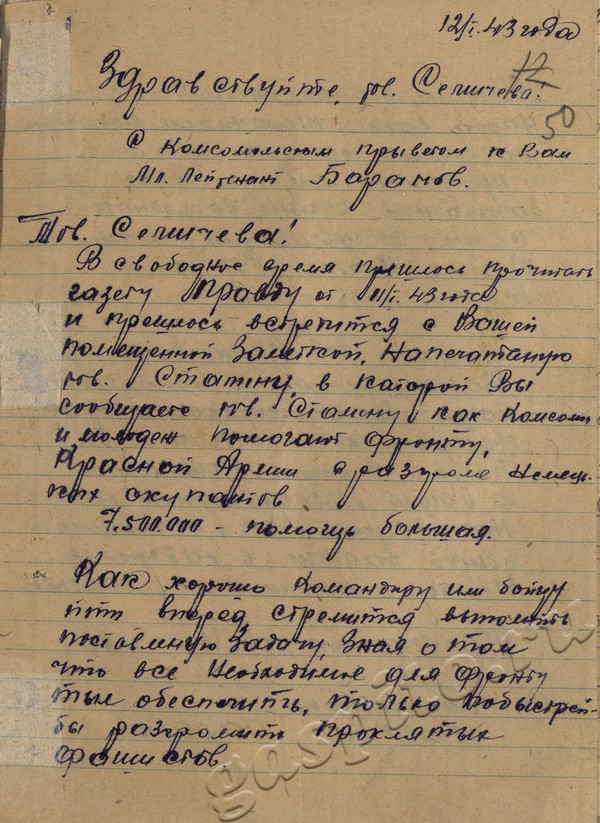 12/I. 43 года
12
Здравствуйте, тов. Сеничева!
50
С Комсомольским прыветом к Вам
Мл. Лейтенант Баранов.
Тов. Сеничева!
В свободное время прешлось прочитать
газету Правду от 11/I. 43 года
и прешлось встретится с Вашей
помещенной Заметкой, Напечатаную
тов. Сталину, в каторой Вы
сообщаете тов. Сталину как Комсомол
и молодеж помогают фронту,
Красной Армии в разгроме Немець-
ких окупантов
7,500.000 - помощь большая.
Как хорошо Командиру или бойцу
итти вперед, стремится выполнить
поставленую Задачу, Зная о том
что все Необходимое для фронту
тыл обеспечить, только побыстрей-
бы разгромить проклятых
фашистов.
gaspito.ru